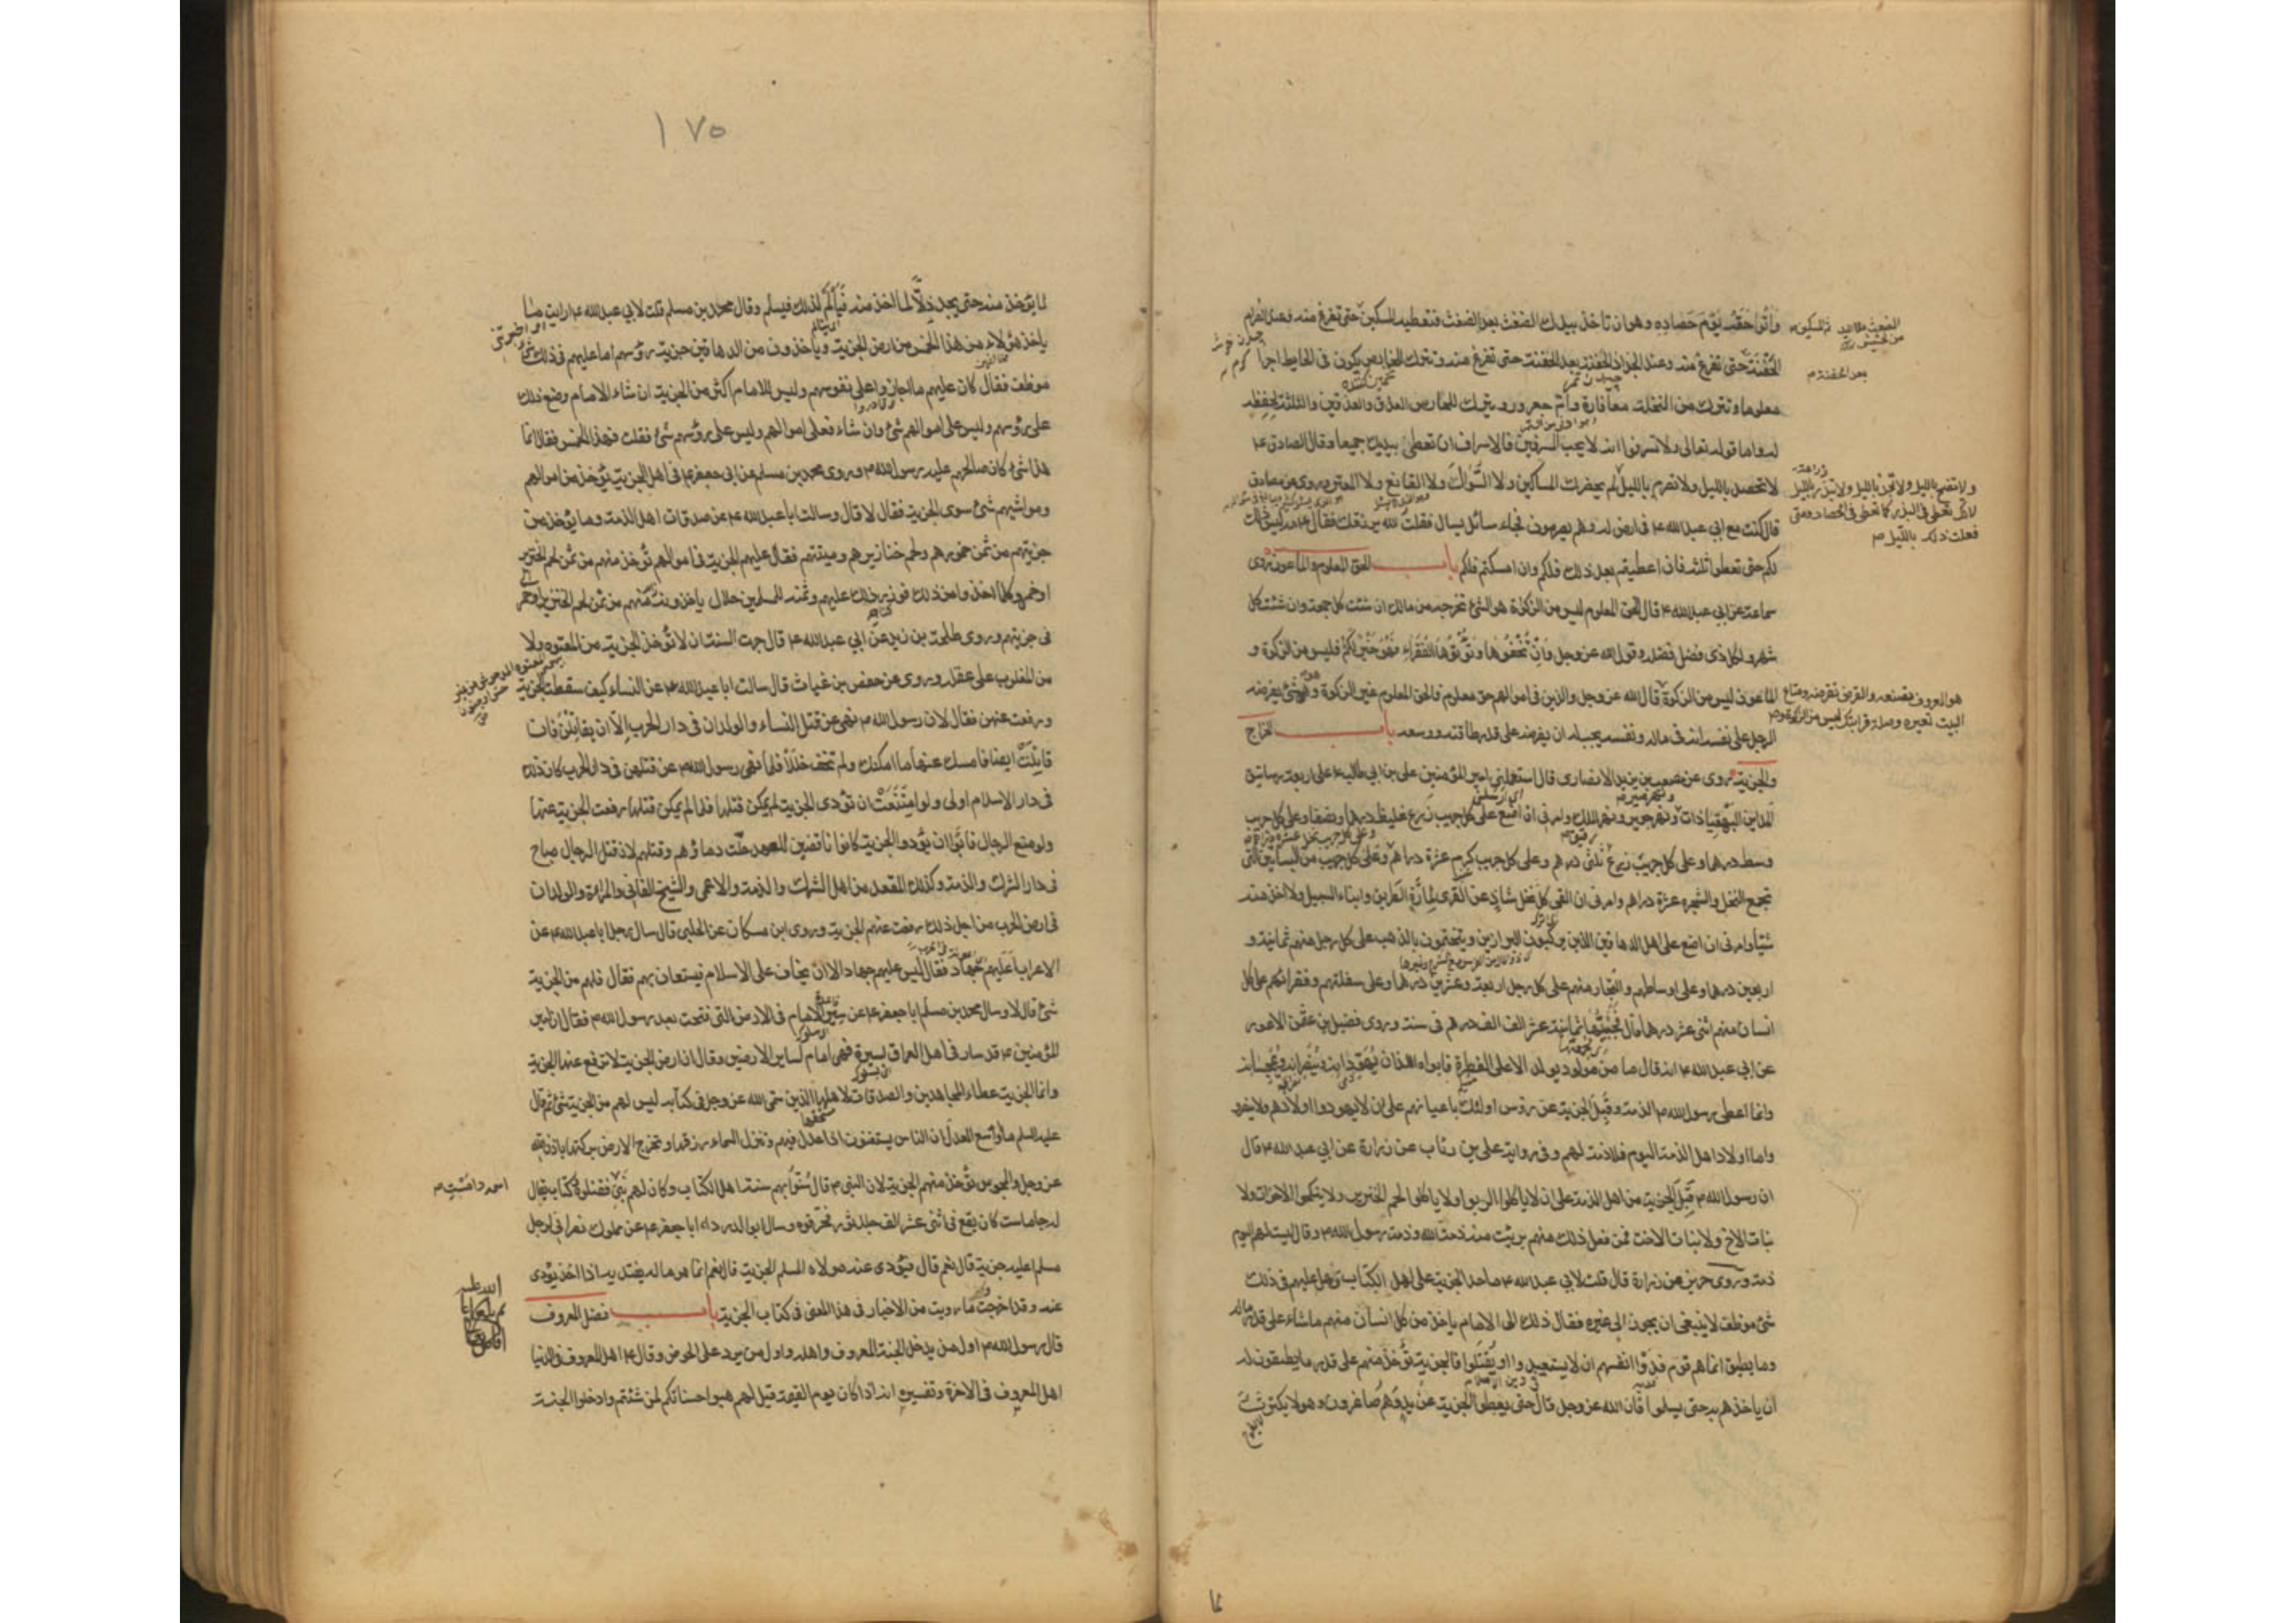 وآتوا حقه يوم حصاده وهو ان تاخذ بيدك الضغث بعد الضغث فتعطيه المسكين حتى تفرغ منه وعند الصرام
الحفنة حتى تفرغ منه وعند الجذاذ الحفنة بعد الحفنة حتى تفرغ منه وتترك للخارص يكون فى الحايط اجرا
معلوما وتترك من النخلة معافارة وام جعرور وتترك للحارس العذق والعذقين والثلثة لحفظه
له واما قوله تعالى ولا تسرفوا انه لا يحب المسرفين فالاسراف ان تعطى بيديك جميعا وقال الصادق ع
لا تحصد بالليل ولا تصرم بالليل
قال كنت مع ابي عبد الله ع فى ارض له وهم يصرمون فجاء سائل يسال فقلت الله يرزقك فقال ع مه ليس ذلك
لكم حتى تعطوا ثلثه فان اعطيتم بعد ذلك فلكم وان امسكتم فلكم باب الحق المعلوم والماعون روى
سماعة عن ابي عبد الله ع قال الحق المعلوم ليس من الزكوة هو الشئ تخرجه من مالك ان شئت كل جمعة وان شئت كل
شهر ولكل ذى فضل فضله وقول الله عز وجل وان تخفوها وتؤتوها الفقراء فهو خير لكم فليس من الزكوة و
الماعون ليس من الزكوة قال الله عز وجل والذين فى اموالهم حق معلوم فالحق المعلوم غير الزكوة وهو شئ يفرضه
الرجل على نفسه انه فى ماله ونفسه يجب له ان يفرضه على قدر طاقته ووسعه باب الخراج
والجزية روى عن مصعب بن يزيد الانصارى قال استعملنى امير المؤمنين على بن ابي طالب ع على اربعة رساتيق
المداين البهقباذات ونهر جوير ونهر الملك وامرنى ان اضع على كل جريب زرع غليظ درهما ونصفا وعلى كل جريب
وسط درهما وعلى كل جريب زرع ثلثى درهم وعلى كل جريب كرم عشرة دراهم وعلى كل جريب من البساتين التى
تجمع النخل والشجر عشرة دراهم وامرنى ان القى كل نخل شاذ عن القرى لمارة الطريق وابناء السبيل ولا اخذ منه
شيئا وامرنى ان اضع على اهل الدهاقين الذين يركبون البراذين ويتختمون بالذهب على كل رجل منهم ثمانية و
اربعين درهما وعلى اوساطهم والتجار منهم على كل رجل اربعة وعشرين درهما وعلى سفلتهم وفقرائهم على كل
انسان منهم اثنى عشر درهما قال فجبيتها ثمانية عشر الف الف درهم فى سنة وروى فضيل بن عثمن الاعور
عن ابي عبد الله ع انه قال ما من مولود يولد الا على الفطرة فابواه اللذان يهودانه وينصرانه ويمجسانه
وانما اعطى رسول الله ص الذمة وقبل الجزية عن رؤس اولئك باعيانهم على ان لا يهودوا اولادهم ولا ينصروا
واما اولاد اهل الذمة اليوم فلا ذمة لهم وفى رواية على بن رئاب عن زرارة عن ابي عبد الله ع قال
ان رسول الله ص قبل الجزية من اهل الذمة على ان لا ياكلوا الربوا ولا ياكلوا لحم الخنزير ولا ينكحوا الاخوات ولا
بنات الاخ ولا بنات الاخت فمن فعل ذلك منهم برئت منه ذمة الله وذمة رسول الله ص وقال ليست لهم اليوم
ذمة وروى حريز عن زرارة قال قلت لابي عبد الله ع ما حد الجزية على اهل الكتاب وهل عليهم فى ذلك
شئ موظف لا ينبغى ان يجوز الى غيره فقال ذلك الى الامام ياخذ من كل انسان منهم ما شاء على قدر ماله
وما يطيق انما هم قوم فدوا انفسهم ان لا يستعبدوا او يقتلوا فالجزية تؤخذ منهم على قدر ما يطيقون له
ان ياخذهم به حتى يسلموا فان الله عز وجل قال حتى يعطوا الجزية عن يد وهم صاغرون وهو لا يكترث
١٧٥
لما يؤخذ منه حتى يجد ذلا لما اخذ منه فيألم لذلك فيسلم وقال محمد بن مسلم قلت لابي عبد الله ع ارايت ما
ياخذ هؤلاء من هذا الخمس من ارض الجزية وياخذون من الدهاقين جزية رؤسهم اما عليهم فى ذلك شئ
موظف فقال كان عليهم ما اجازوا على نفوسهم وليس للامام اكثر من الجزية ان شاء الامام وضع ذلك
على رؤسهم وليس على اموالهم شئ وان شاء فعلى اموالهم وليس على رؤسهم شئ فقلت فهذا الخمس فقال انما
هذا شئ كان صالحهم عليه رسول الله ص وروى محمد بن مسلم عن ابى جعفر ع فى اهل الجزية يؤخذ من اموالهم
ومواشيهم شئ سوى الجزية فقال لا قال وسالت ابا عبد الله ع عن صدقات اهل الذمة وما يؤخذ من
جزيتهم من ثمن خمورهم ولحم خنازيرهم وميتتهم فقال عليهم الجزية فى اموالهم تؤخذ منهم من ثمن لحم الخنزير
او خمر وكلما اخذوا من ذلك فوزر ذلك عليهم وثمنه للمسلمين حلال ياخذونه منهم من ثمن لحم الخنزير او خمر
فى جزيتهم وروى طلحة بن زيد عن ابي عبد الله ع قال جرت السنة ان لا تؤخذ الجزية من المعتوه ولا
من المغلوب على عقله وروى عن حفص بن غياث قال سالت ابا عبد الله ع عن النساء كيف سقطت الجزية
ورفعت عنهن فقال لان رسول الله ص نهى عن قتل النساء والولدان فى دار الحرب الا ان يقاتلن فان
قاتلت ايضا فامسك عنها ما امكنك ولم تخف خللا فلما نهى رسول الله ص عن قتلهن فى دار الحرب كان ذلك
فى دار الاسلام اولى ولو امتنعت ان تؤدى الجزية لم يمكن قتلها فلما لم يمكن قتلها رفعت الجزية عنها
ولو منع الرجال فابوا ان يؤدوا الجزية كانوا ناقضين للعهد حلت دماؤهم وقتلهم لان قتل الرجال مباح
فى دار الشرك والذمة وكذلك المقعد من اهل الشرك والذمة والاعمى والشيخ الفانى والمراة والولدان
فى ارض الحرب من اجل ذلك رفعت عنهم الجزية وروى ابن مسكان عن الحلبى قال سال رجل ابا عبد الله ع عن
الاعراب اعليهم جهاد فقال ليس عليهم جهاد الا ان يخاف على الاسلام فيستعان بهم فقال فلهم من الجزية
شئ قال لا وسال محمد بن مسلم ابا جعفر ع عن سيرة الامام فى الارض التى فتحت بعد رسول الله ص فقال ان امير
المؤمنين ع قد سار فى اهل العراق بسيرة فهى امام لساير الارضين وقال ان ارض الجزية لا ترفع عنها الجزية
وانما الجزية عطاء المجاهدين والصدقات لاهلها الذين سمى الله عز وجل فى كتابه ليس لهم من الجزية شئ ثم قال
عليه السلم ما اوسع العدل ان الناس يستغنون اذا عدل فيهم وتنزل السماء رزقها وتخرج الارض بركتها باذن الله
عز وجل والمجوس تؤخذ منهم الجزية لان النبى ص قال سنوا بهم سنة اهل الكتاب وكان لهم نبى فقتلوه وكتاب يقال
له جاماست كان يقع فى اثنى عشر الف جلد ثور فحرقوه وسال ابو الدرداء ابا جعفر ع عن مملوك نصرانى لرجل
مسلم اعليه جزية قال نعم قال فيؤدى عنه مولاه المسلم الجزية قال نعم انما هو ماله يفتديه اذا اخذ يؤدى
عنه وقد اخرجت ما رويت من الاخبار فى هذا المعنى فى كتاب الجزية باب فضل المعروف
قال رسول الله ص اول من يدخل الجنة المعروف واهله واول من يرد على الحوض وقال ع اهل المعروف فى الدنيا
اهل المعروف فى الاخرة وتفسيره انه اذا كان يوم القيمة قيل لهم هبوا حسناتكم لمن شئتم وادخلوا الجنة